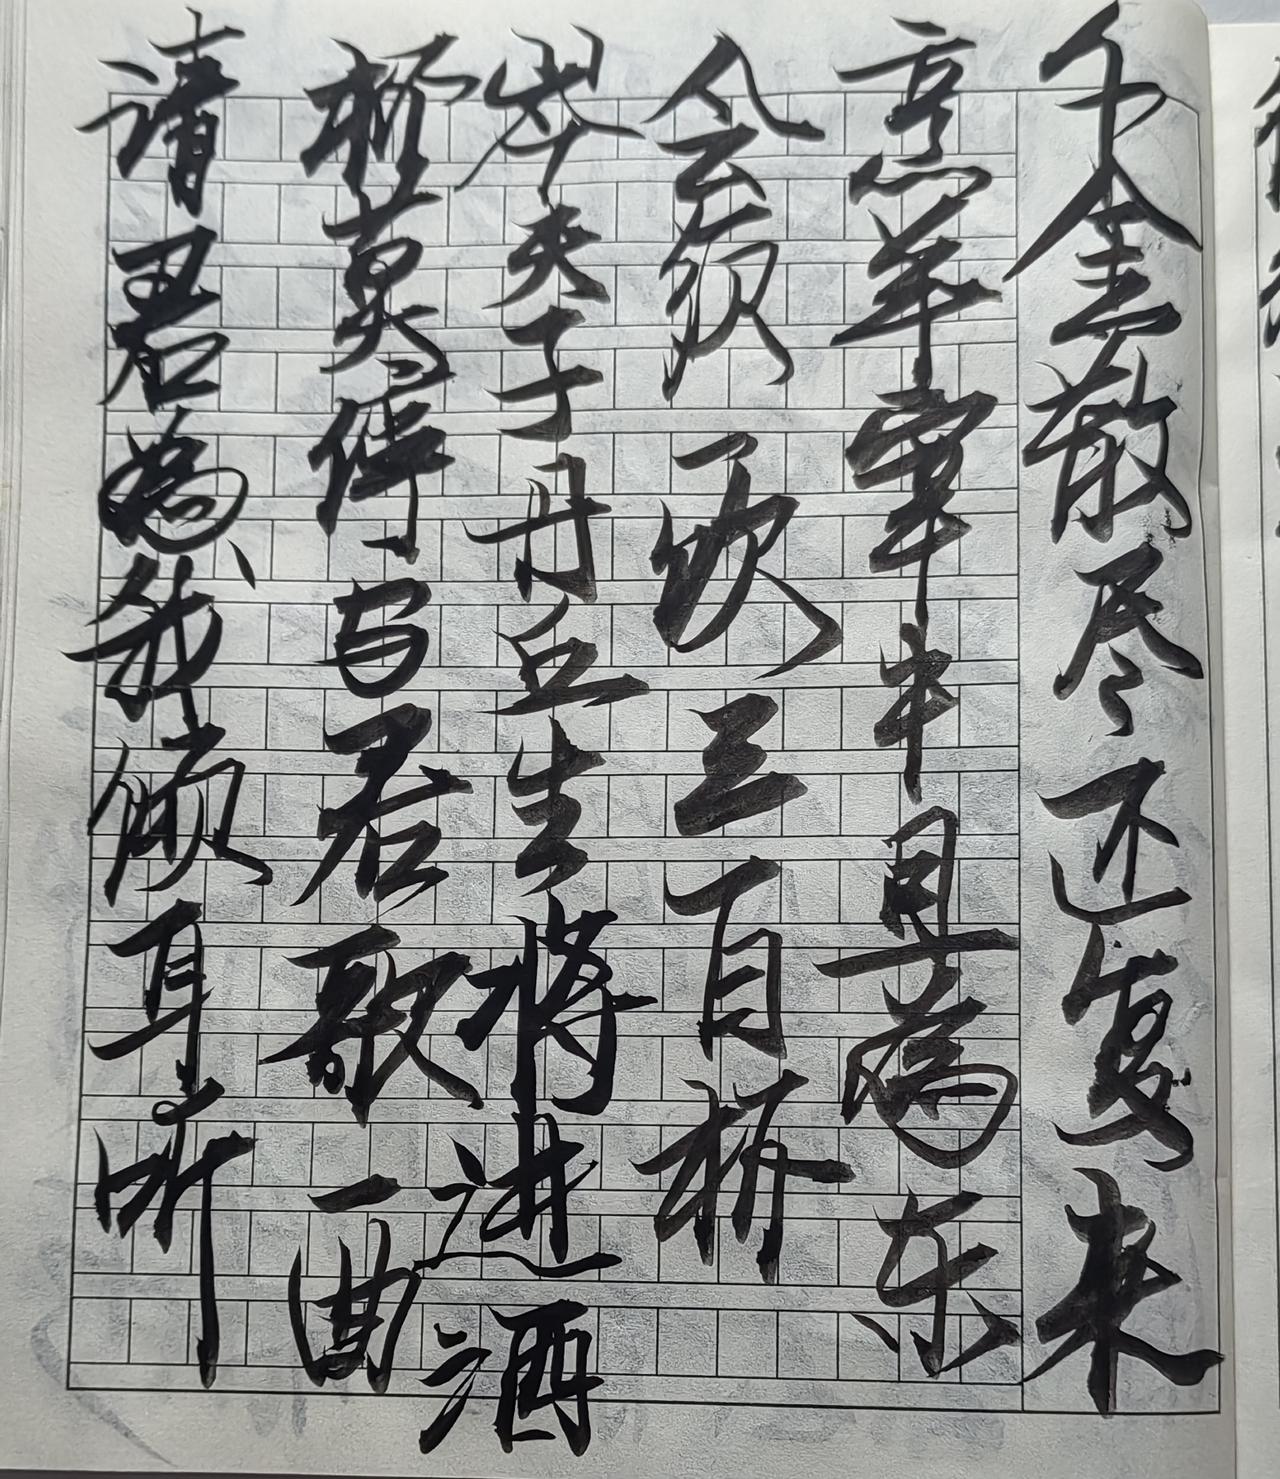 千金散尽还复来
烹羊宰牛且為乐
会须一饮三百杯
岑夫子丹丘生将进酒
杯莫停与君歌一曲
请君為我倾耳听